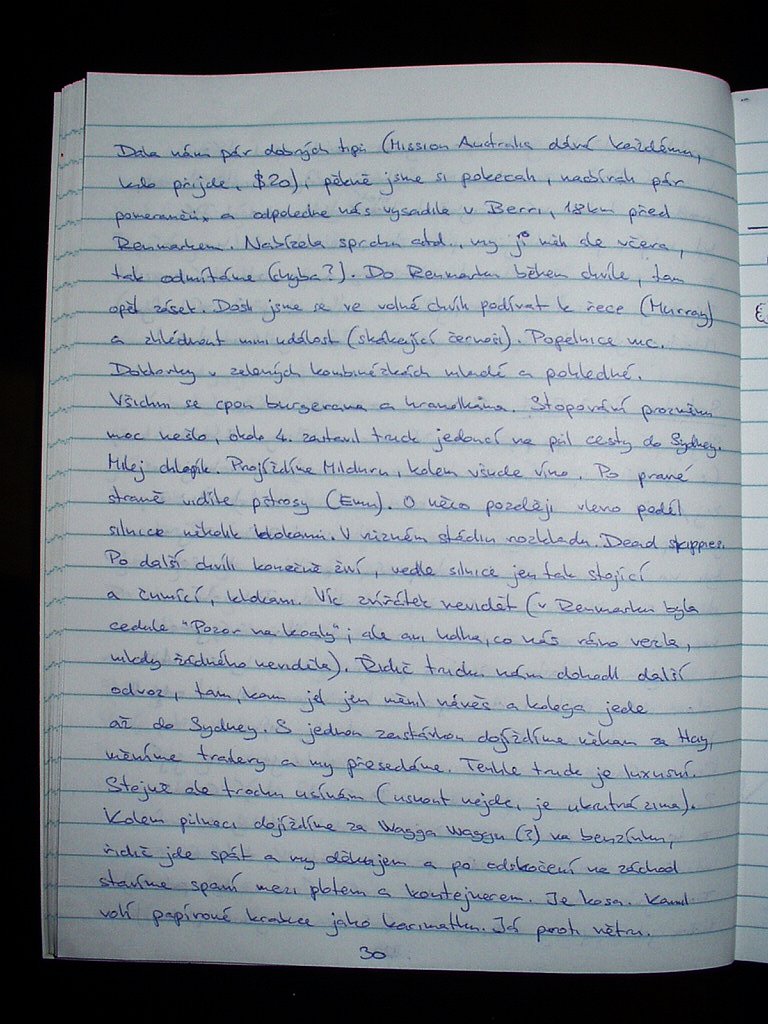 Dala nám pár dobrých tipů (Mission Australia dává každému,
kdo přijde, $20), pěkně jsme si pokecali, nasbírali pár
pomerančů, a odpoledne nás vysadila v Berri, 18km před
Renmarkem. Nabízela sprchu atd., my ji měli ale včera,
tak odmítáme (chyba?). Do Renmarku během chvíle, tam
opět zásek. Došli jsme se ve volné chvíli podívat k řece (Murray)
a zhlédnout mini událost (skákající černoši). Popelnice vic.
Doktorky v zelených kombinézkách mladé a pohledné.
Všichni se cpou burgerama a hranolkama. Stopování prozměnu
moc nešlo, okolo 4. zastavil truck jedoucí na půl cesty do Sydney.
Milej chlapík. Projíždíme Milduru, kolem všude víno. Po pravé
straně vidíte pštrosy (Emu). O něco později vlevo podél
silnice několik klokanů. V různém stádiu rozkladu. Dead skippies.
Po další chvíli konečně živí, vedle silnice jen tak stojící
a čumící, klokani. Víc zvířátek nevidět (v Renmarku byla
cedule "Pozor na koaly", ale ani holka, co nás ráno vezla,
nikdy žádného neviděla). Řidič trucku nám dohodl další
odvoz, tam, kam jel jen měnil návěs a kolega jede
až do Sydney. S jednou zastávkou dojíždíme někam za Hay,
měníme trailery a my přesedáme. Tenhle truck je luxusní.
Stejně ale trochu usínám (usnout nejde, je ukrutná zima).
Kolem půlnoci dojíždíme za Wagga Waggu (?) na benzínku,
řidič jde spát a my děkujem a po odskočení na záchod
stavíme spaní mezi plotem a kontejnerem. Je kosa. Kamil
volí papírové krabice jako karimatku. Já proti větru.
30